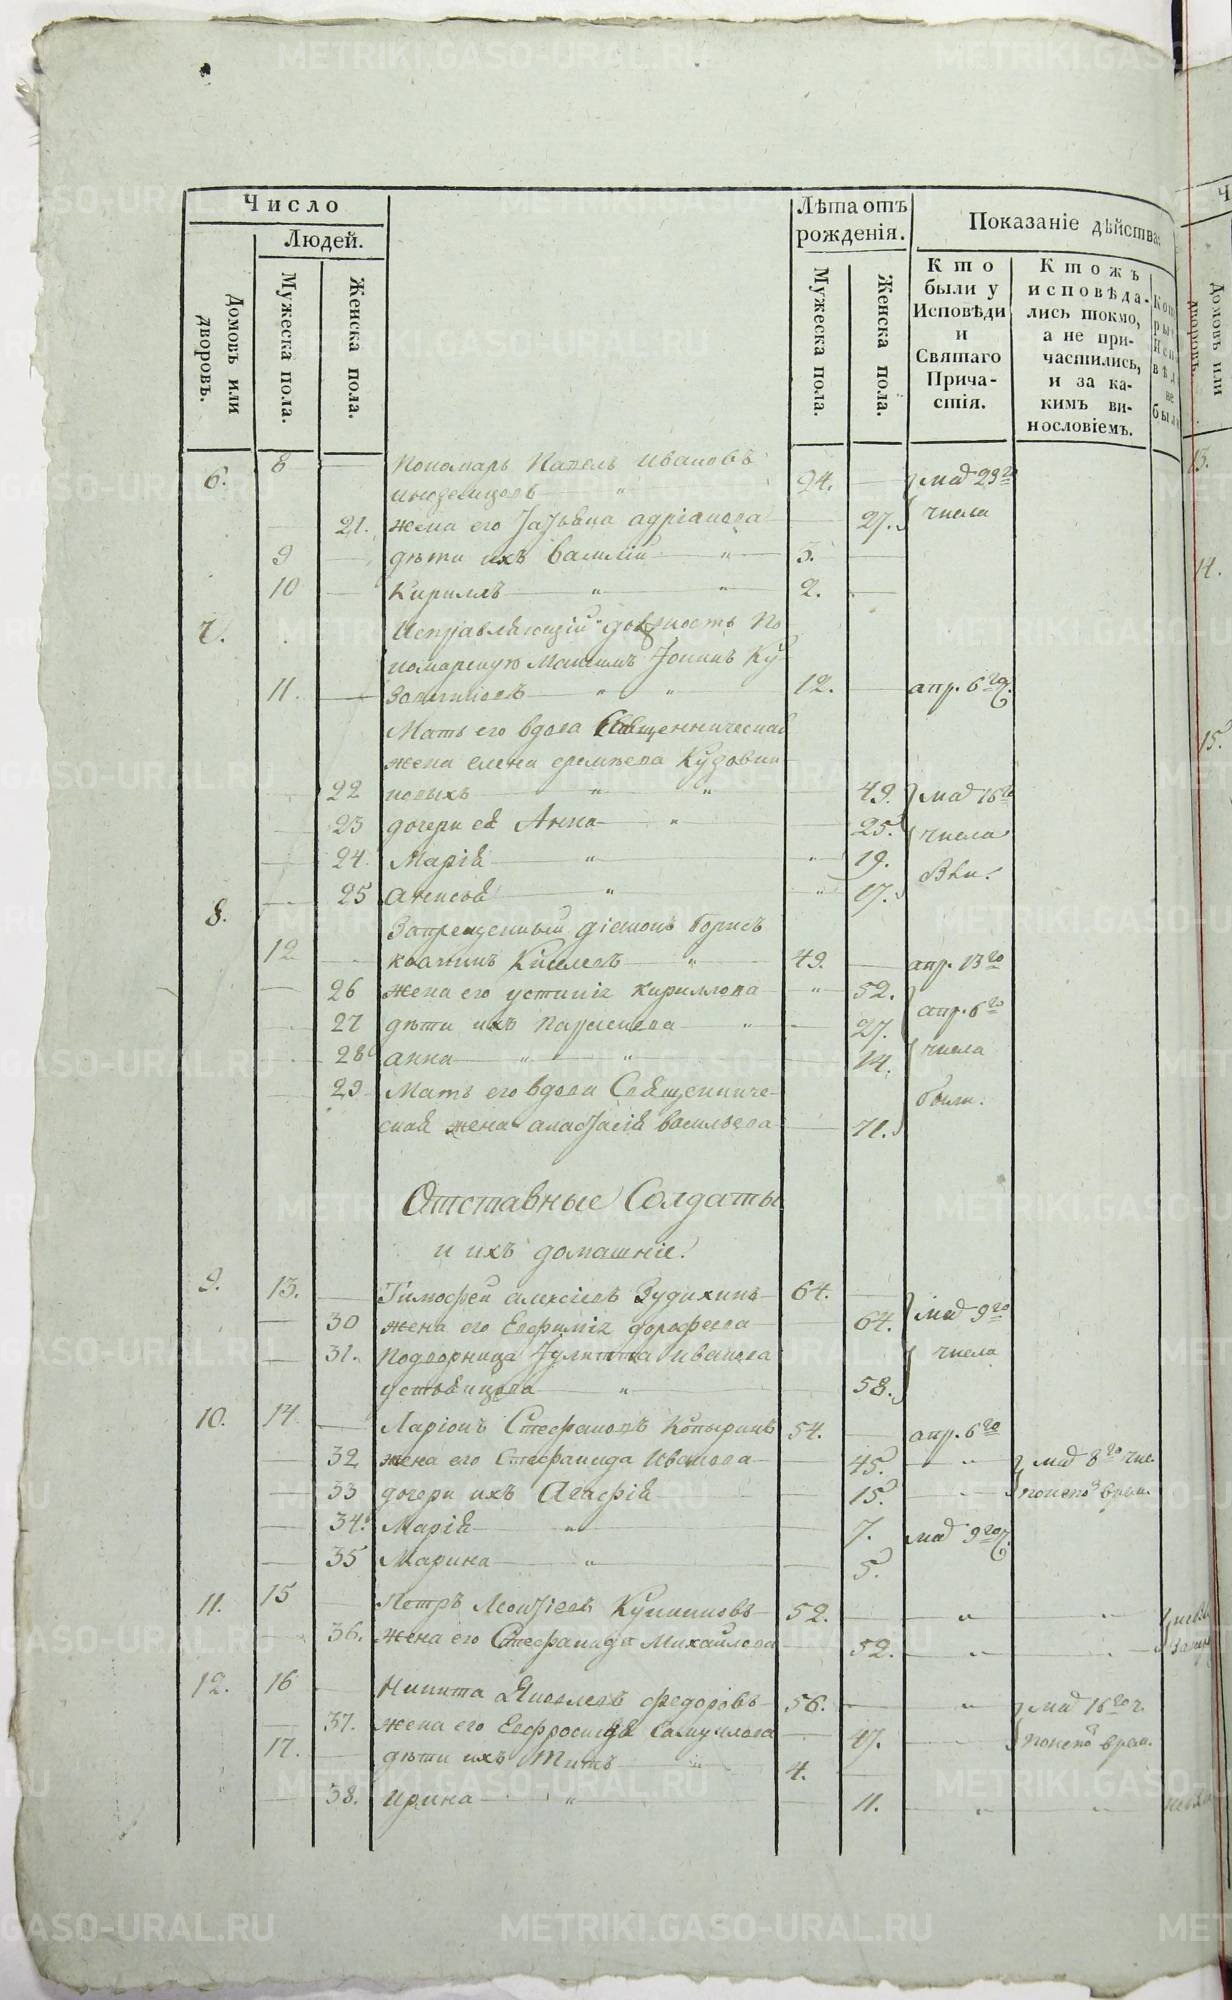 Число
Людей.
Домовъ или дворовъ.
Мужеска пола.
Женска пола.
Лѣта отъ рожденія.
Мужеска пола.
Женска пола.
Показаніе дѣйства
Кто были у Исповѣди и Святаго Причастія.
Ктожъ исповѣдались токмо, а не причастились, и за какимъ винословіемъ.
6. 8 Пономарь Павелъ Ивановъ 24. маія 23го
21. жена его Татьяна адріанова 27. числа
9 дѣти ихъ Василій 3.
10 Кириллъ 2.
7. Исправляющій должность По
номарскую Максимъ Іонинъ Ку
11. 12. апр. 6го
Мать его вдова Священническая
жена елена еремѣева Кудовши
22 новыхъ 49. маія 16го
23 дочери ея Анна 25. числа
24. Марія 19.
25 анисья 17. были
8. Запрещенный діаконъ борисъ
12 Киселевъ 49. апр. 13го
26 жена его устинія кириллова 52. апр. 6го
27 дѣти ихъ 27.
28 анна 14. числа
29 Мать его вдова Священниче-
ская жена анастасія васильева 71. были.
Отставные Солдаты
и ихъ домашніе.
9. 13. Тимофей алексѣевъ Зудихинъ 64.
30 жена его Евфимія дорофеева 64. маія 9го
31. Подворница Іулитта иванова числа
устьянцова 58.
10. 14 Ларіонъ Стефановъ Копыринъ 54. апр. 6го
32 жена его Стефанида Иванова 45. маія 8го чис.
33 дочери ихъ Агафія 15.
34. Марія 7. маія 9го
35 Марина 5.
11. 15 Петръ Леонтіевъ 52.
36. жена его Стефанида Михайлова 52.
12. 16 Никита Яковлевъ федоровъ 56. маія 16го ч.
37. жена его Евфросинія Самуилова 47.
17. дѣти ихъ Титъ 4.
38. Ирина 11.
METRIKI.GASO-URAL.RU